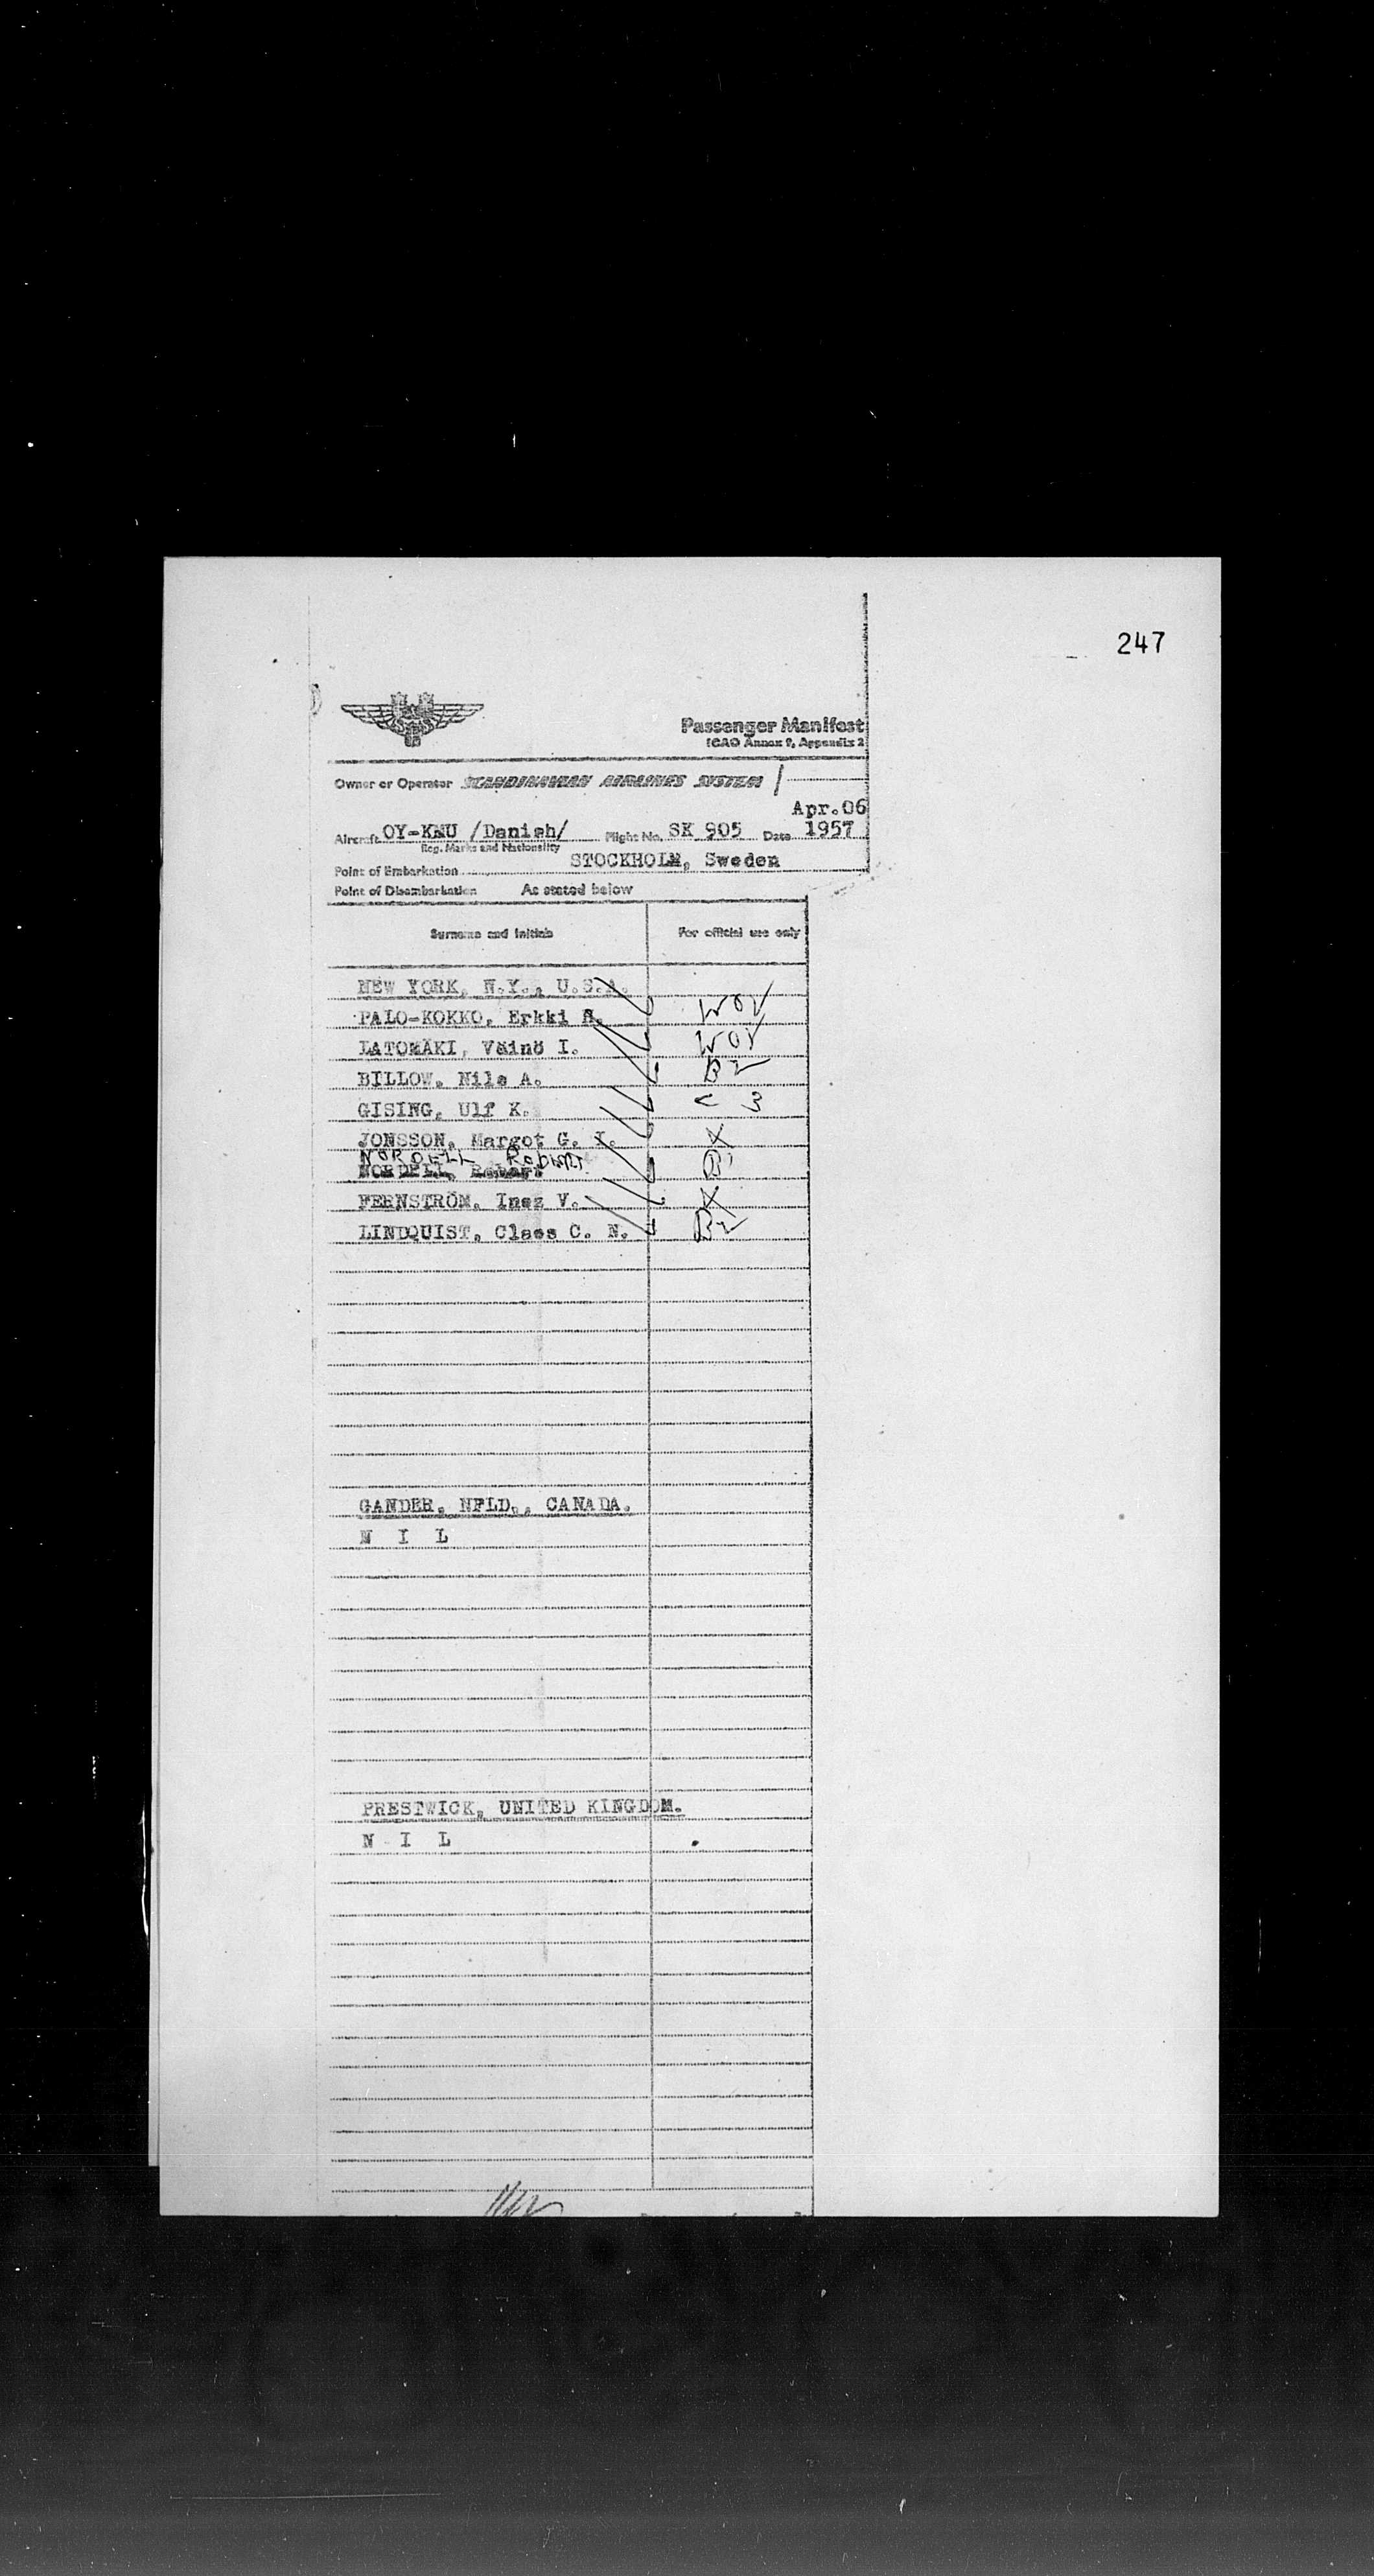 247
Passenger Manifest
ICAO Annex 9, Appendix 2
Owner or Operator SCANDINAVIAN AIRLINES SYSTEM
Apr.06
Aircraft OY-KMU /Danish/ Flight No. SK 905 Date 1957
Reg. Marks and Nationality
Point of Embarkation STOCKHOLM, Sweden
Point of Disembarkation As stated below
Surname and initials For official use only
NEW YORK, N.Y., U.S.A.
PALO-KOKKO, Erkki
LATOMÄKI, Väinö I.
BILLOW, Nils A. B2
GISING, Ulf K. < 3
JONSSON, Margot G. I. X
NORDELL Robert
NORDELL, Robert B1
FERNSTRÖM, Inez V. X
LINDQUIST, Claes C. N. B2
GANDER, NFLD., CANADA.
N I L
PRESTWICK, UNITED KINGDOM.
N I L